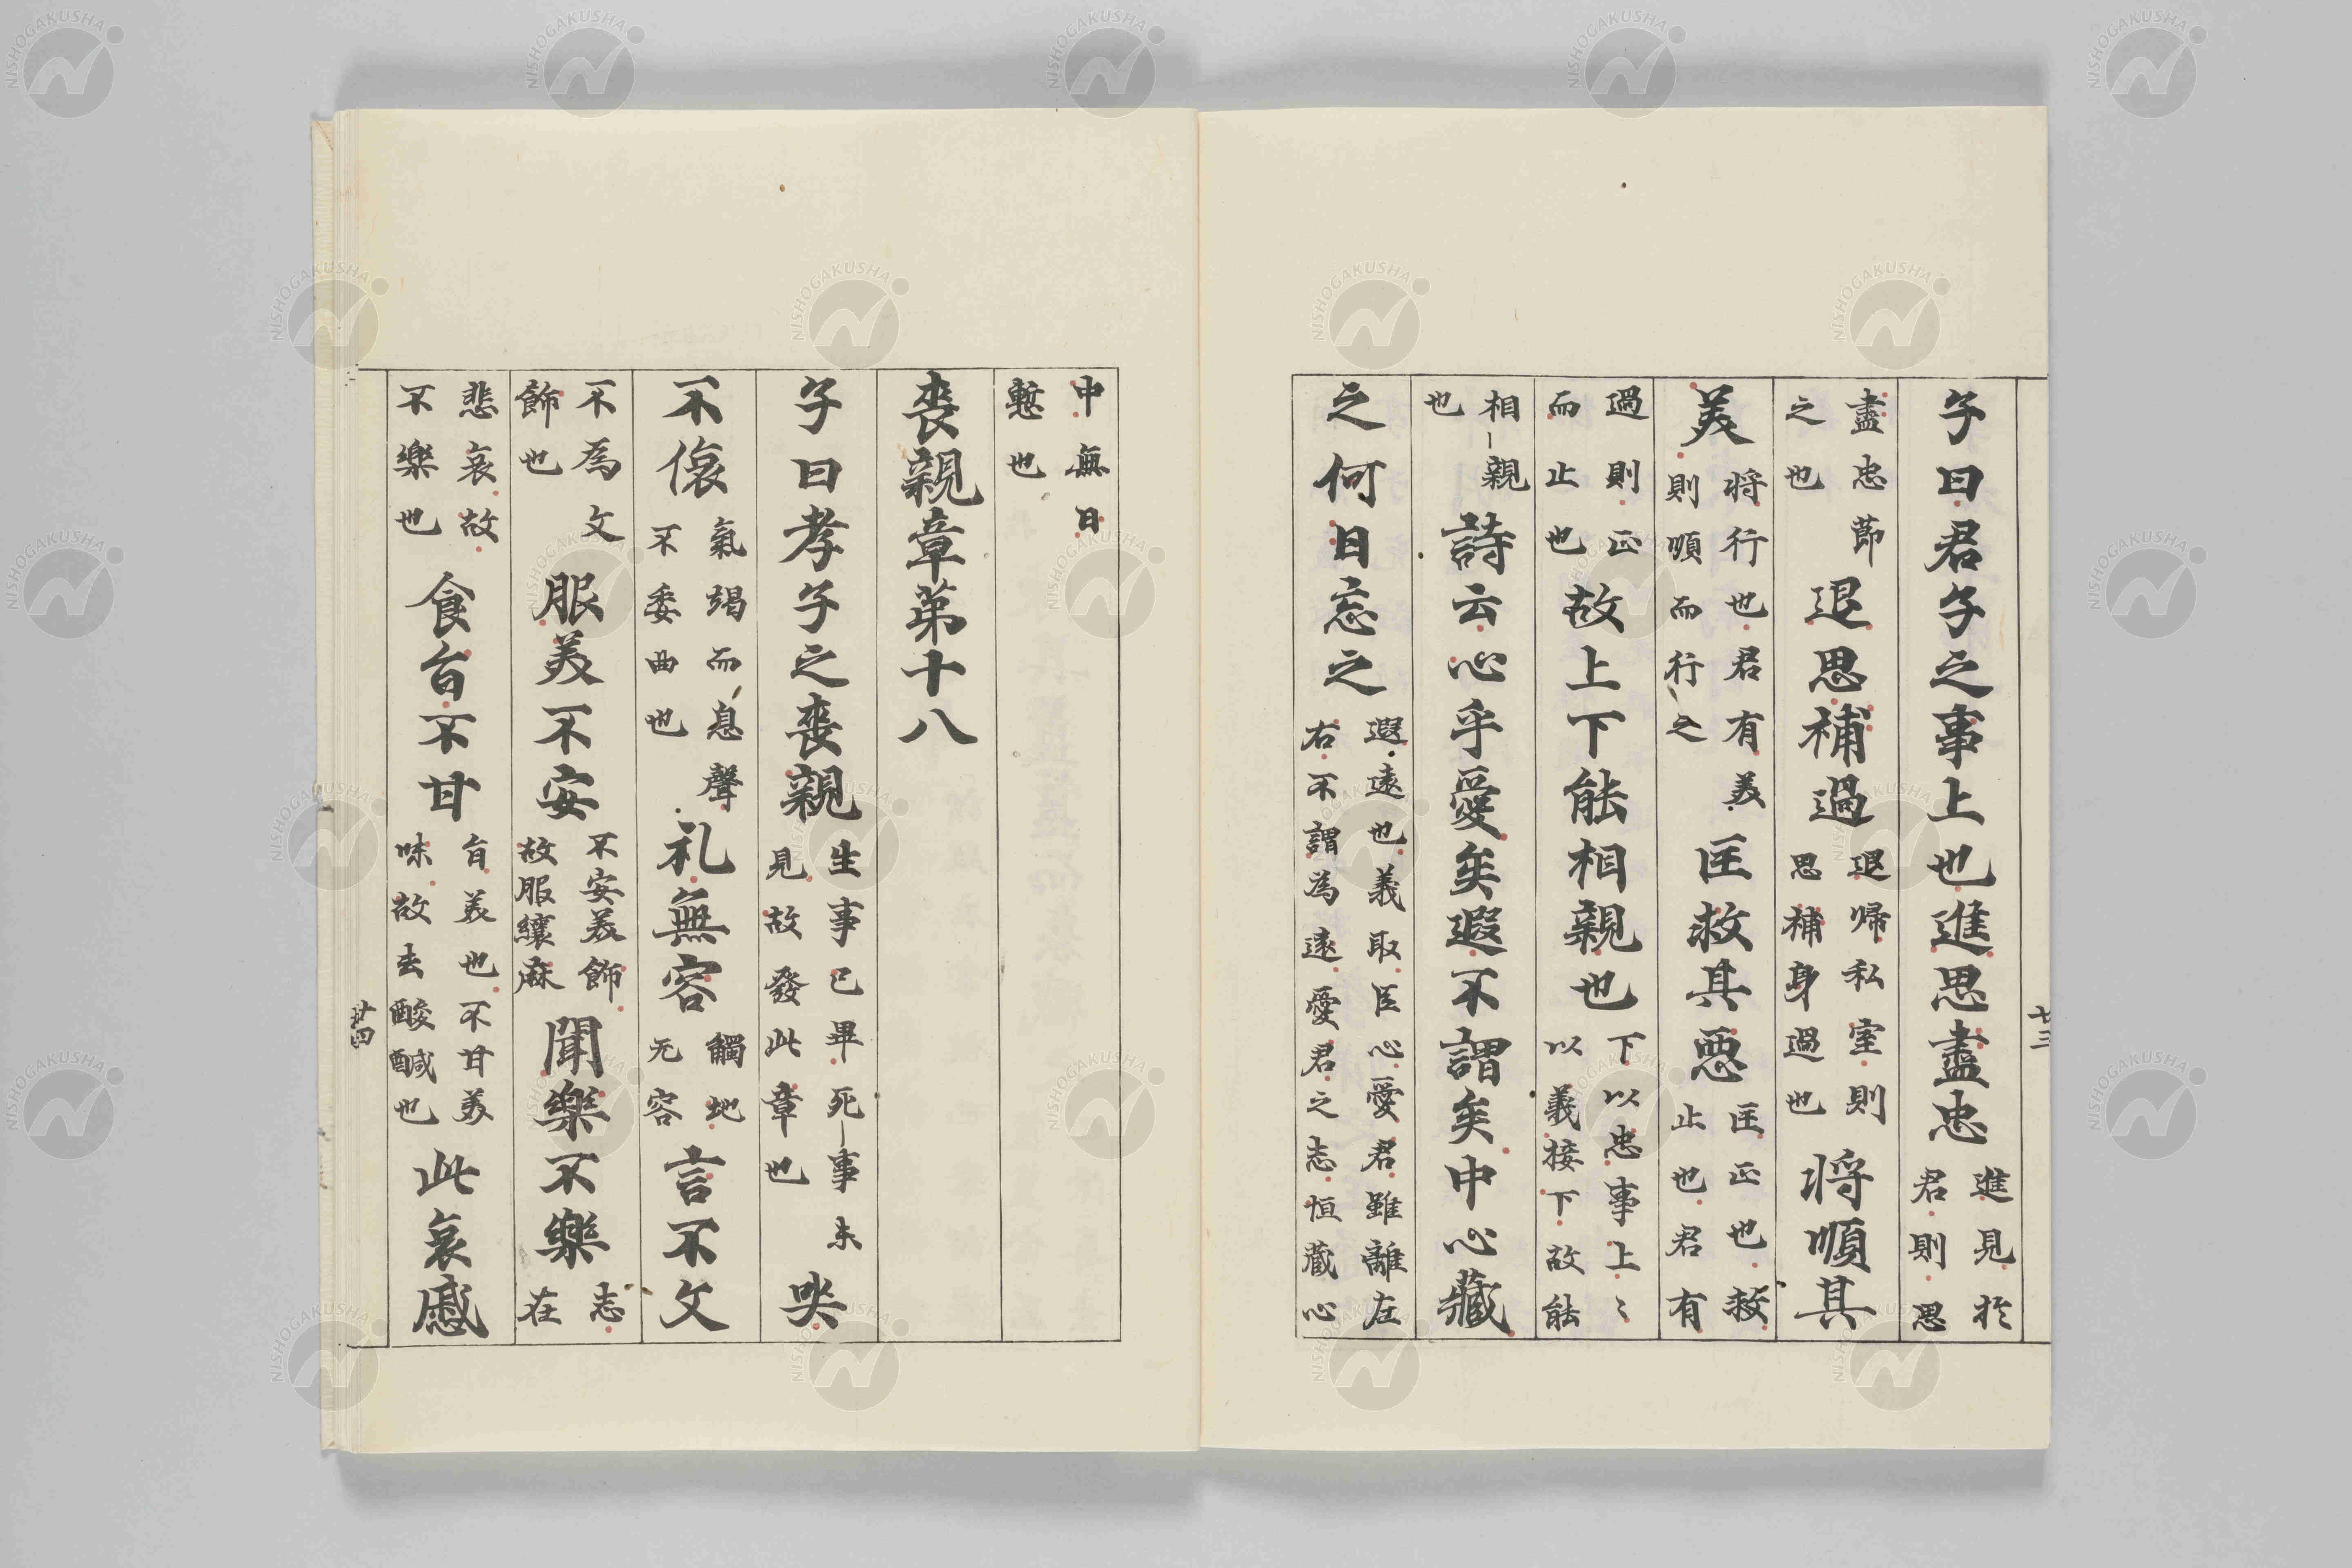 子曰君子之事上也進思盡忠進見於君則思
盡忠節之也退思補過退帰私室則思補身過也将順其
美将行也君有美則順而行之匡救其悪匡正也救止也君有
過則正而止也故上下能相親也下以忠事上〻以義接下故能
相親也詩云心乎愛矣遐不謂矣中心藏
之何日忘之遐遠也義取臣心愛君雖離左右不謂為遠愛君之志恒藏心
廿三
中無日蹔也
喪親章第十八
子曰孝子之喪親生事已畢死事未見故發此章也哭
不偯氣竭而息聲不委曲也礼無容觸地无容言不文
不為文飾也服美不安不安美飾故服縗麻聞樂不樂志在
悲哀故不樂也食旨不甘旨美也不甘美味故去酸醎也此哀慼
廿四
NISHOGAKUSHA